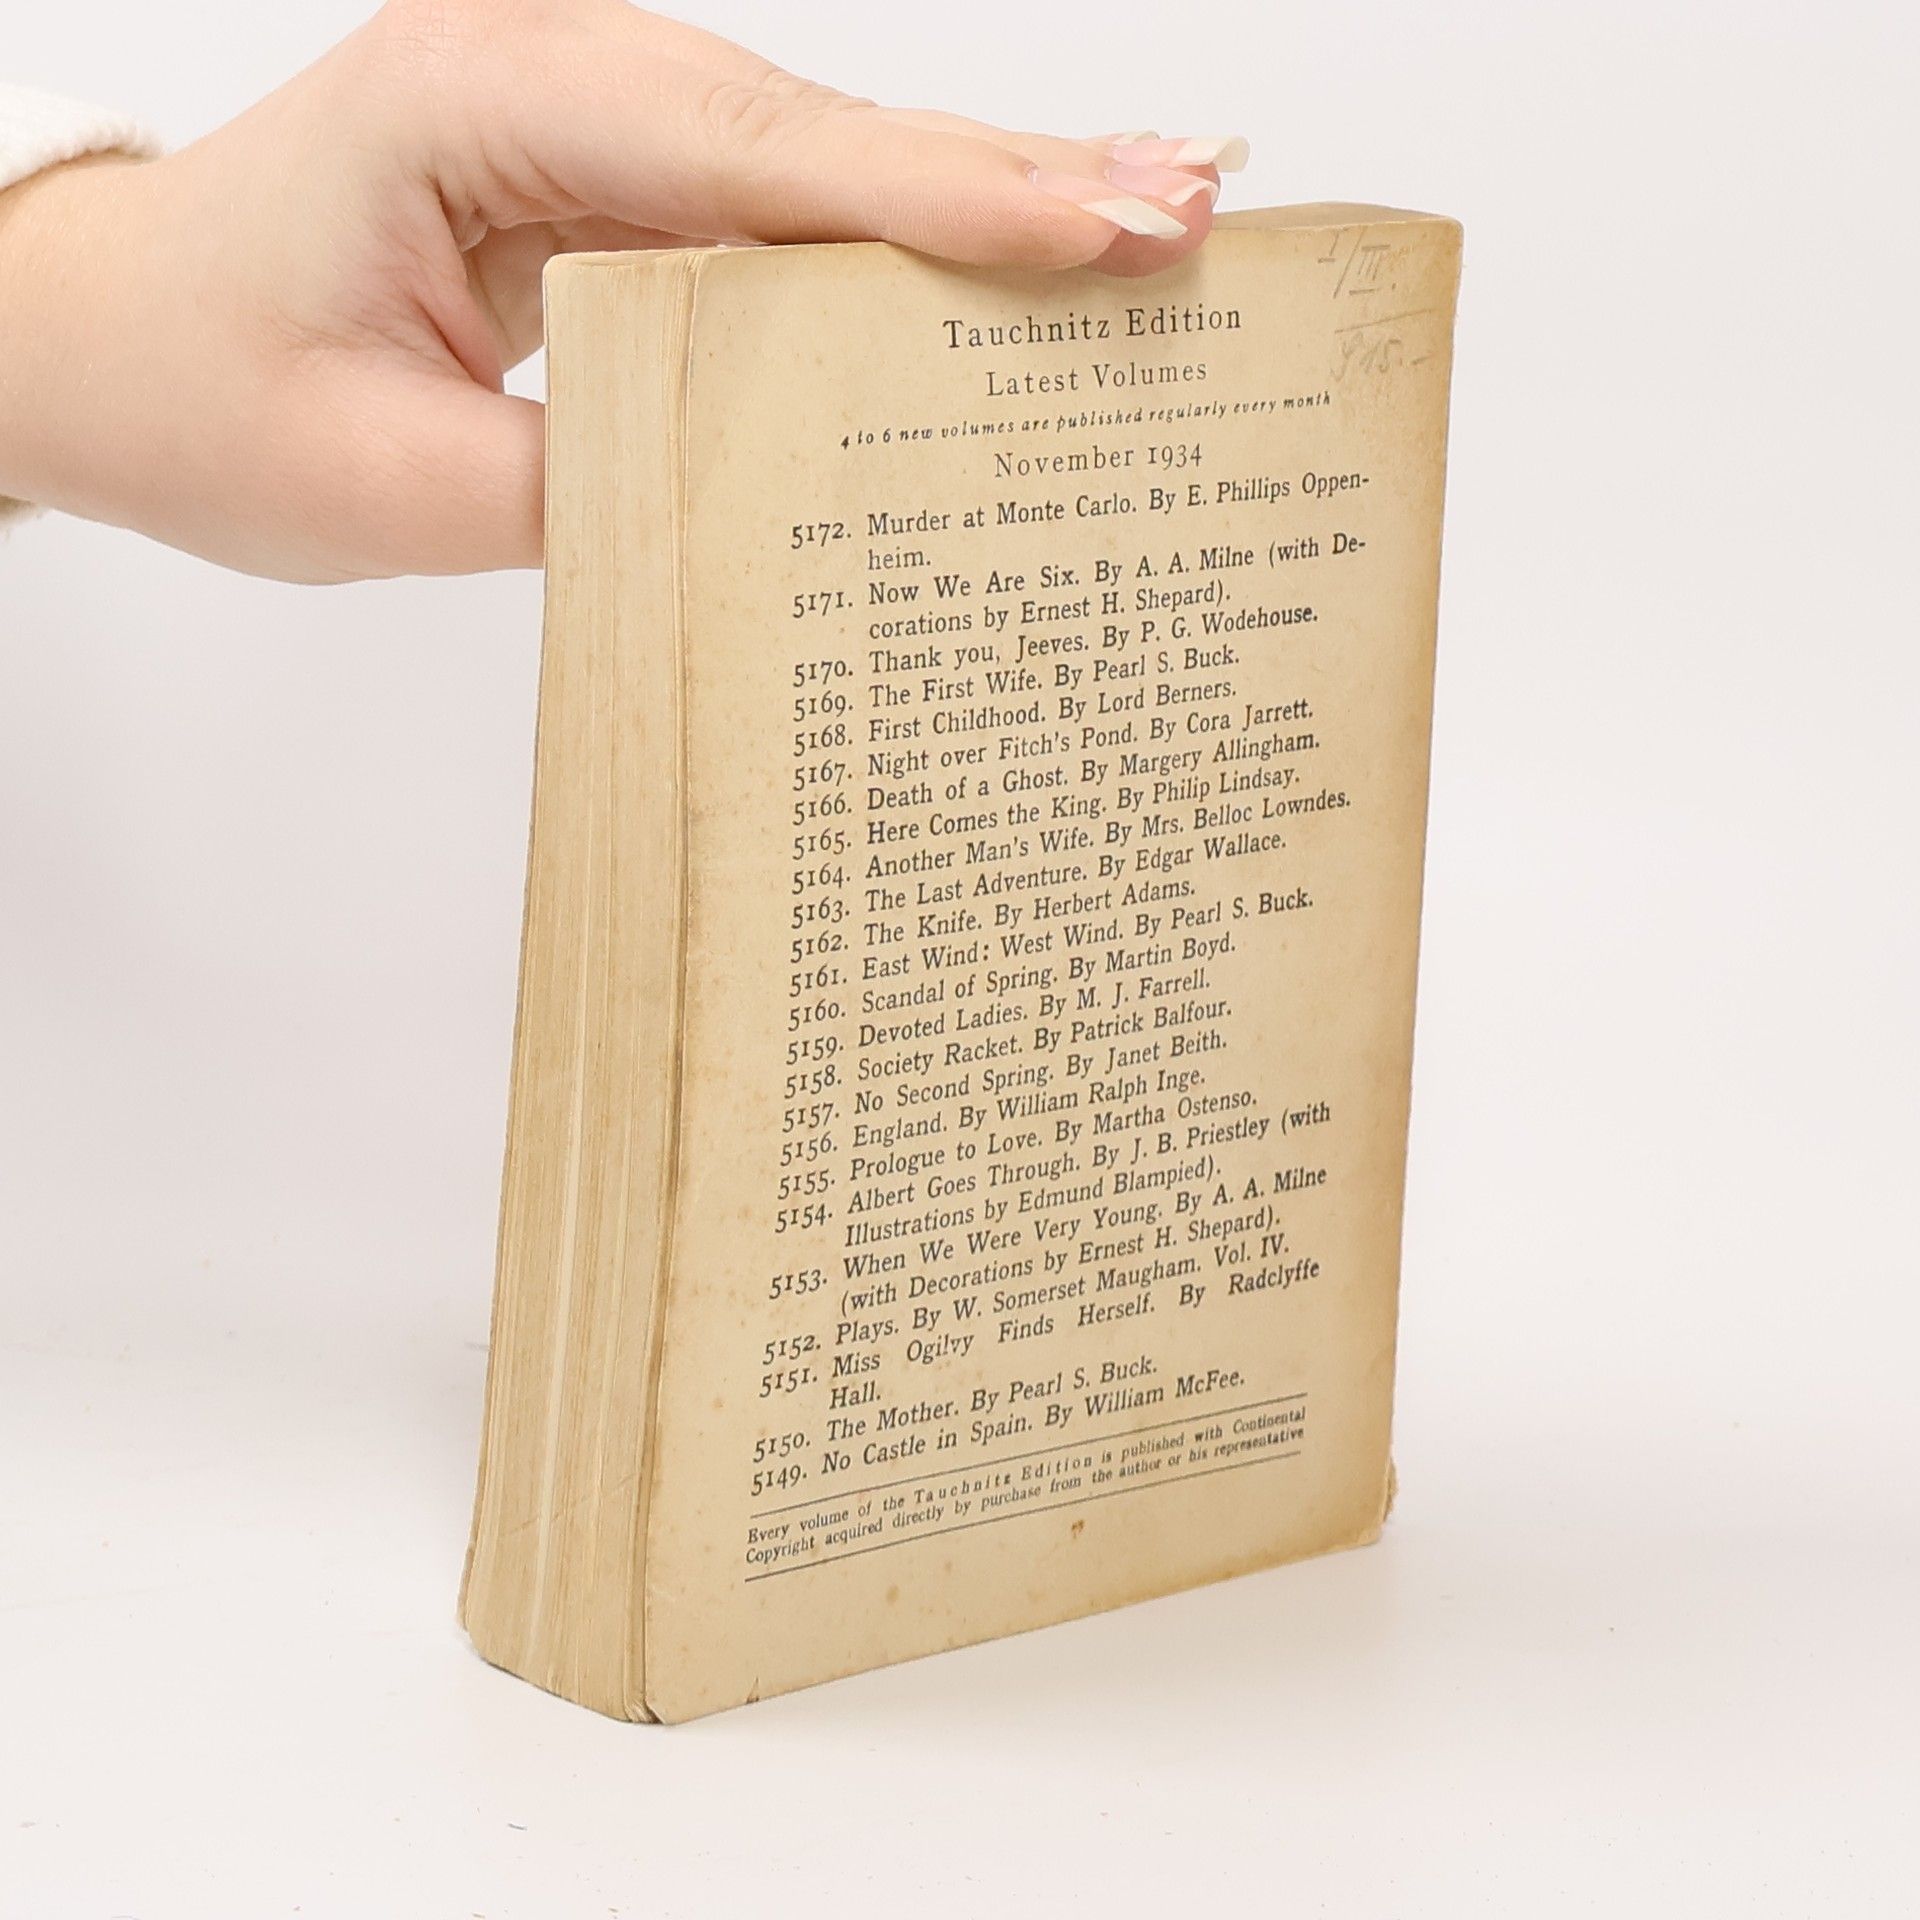 I/III.
Tauchnitz Edition
Latest Volumes
4 to 6 new volumes are published regularly every month
November 1934
5172. Murder at Monte Carlo. By E. Phillips Oppen-
heim.
5171. Now We Are Six. By A. A. Milne (with De-
corations by Ernest H. Shepard).
5170. Thank you, Jeeves. By P. G. Wodehouse.
5169. The First Wife. By Pearl S. Buck.
5168. First Childhood. By Lord Berners.
5167. Night over Fitch's Pond. By Cora Jarrett.
5166. Death of a Ghost. By Margery Allingham.
5165. Here Comes the King. By Philip Lindsay.
5164. Another Man's Wife. By Mrs. Belloc Lowndes.
5163. The Last Adventure. By Edgar Wallace.
5162. The Knife. By Herbert Adams.
5161. East Wind: West Wind. By Pearl S. Buck.
5160. Scandal of Spring. By Martin Boyd.
5159. Devoted Ladies. By M. J. Farrell.
5158. Society Racket. By Patrick Balfour.
5157. No Second Spring. By Janet Beith.
5156. England. By William Ralph Inge.
5155. Prologue to Love. By Martha Ostenso.
5154. Albert Goes Through. By J. B. Priestley (with
Illustrations by Edmund Blampied).
5153. When We Were Very Young. By A. A. Milne
(with Decorations by Ernest H. Shepard).
5152. Plays. By W. Somerset Maugham. Vol. IV.
5151. Miss Ogilvy Finds Herself. By Radclyffe
Hall.
5150. The Mother. By Pearl S. Buck.
5149. No Castle in Spain. By William McFee.
Every volume of the Tauchnitz Edition is published with Continental
Copyright acquired directly by purchase from the author or his representative